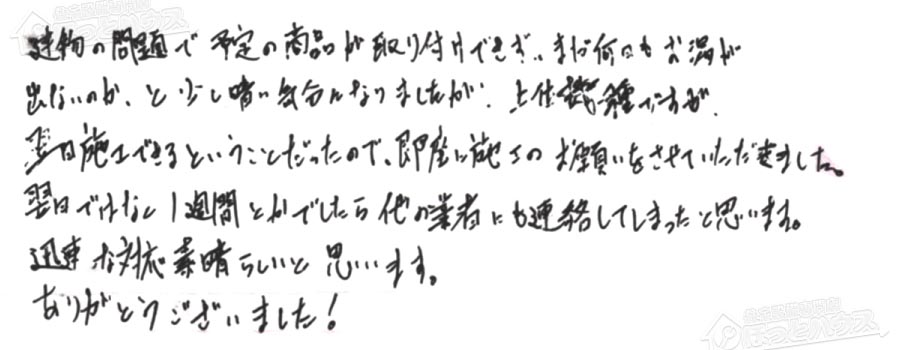 建物の問題で予定の商品が取り付けできず、まだ何日もお湯が
出ないのか、と少し暗い気分になりましたが、上位機種ですが、
翌日施工できるということだったので、即座に施工のお願いをさせていただきました。
翌日ではなく1週間とかでしたら他の業者にも連絡してしまったと思います。
迅速な対応素晴らしいと思います。
ありがとうございました!
ほっとハウス
ほっとハウス